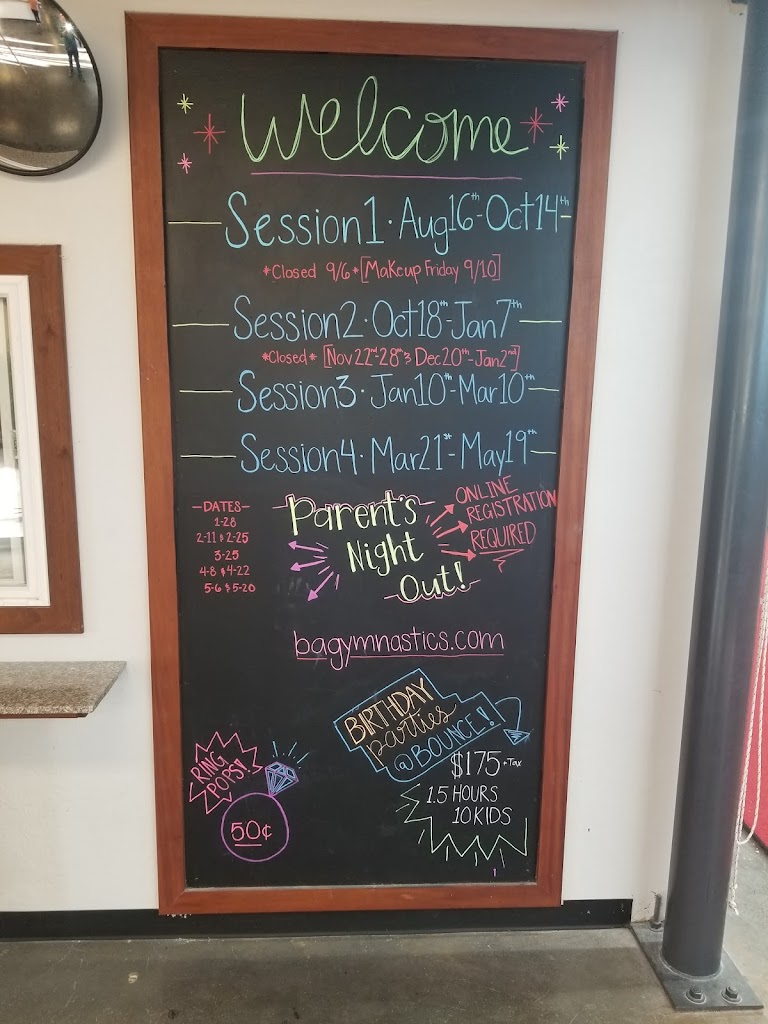 Welcome
Session 1 · Aug 16th - Oct 14th
*Closed 9/6* [Makeup Friday 9/10]
Session 2 · Oct 18th - Jan 7th
*Closed* [Nov 22nd - 28th & Dec 20th - Jan 2nd]
Session 3 · Jan 10th - Mar 10th
Session 4 · Mar 21st - May 19th
-DATES-
1-28
2-11 & 2-25
3-25
4-8 & 4-22
5-6 & 5-20
Parent's
Night
Out!
ONLINE
REGISTRATION
REQUIRED
bagymnastics.com
RING
POPS!
50¢
BIRTHDAY
parties
@BOUNCE!
$175 + Tax
1.5 HOURS
10 KIDS